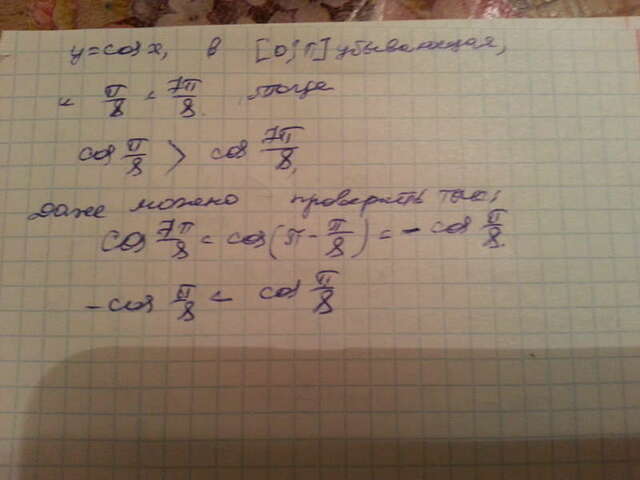 y=cos x, в [0;π] убывающая,
и π/8 < 7π/8. тогда
cos π/8 > cos 7π/8,
даже можно проверить так:
cos 7π/8 = cos(π - π/8) = - cos π/8.
- cos π/8 < cos π/8